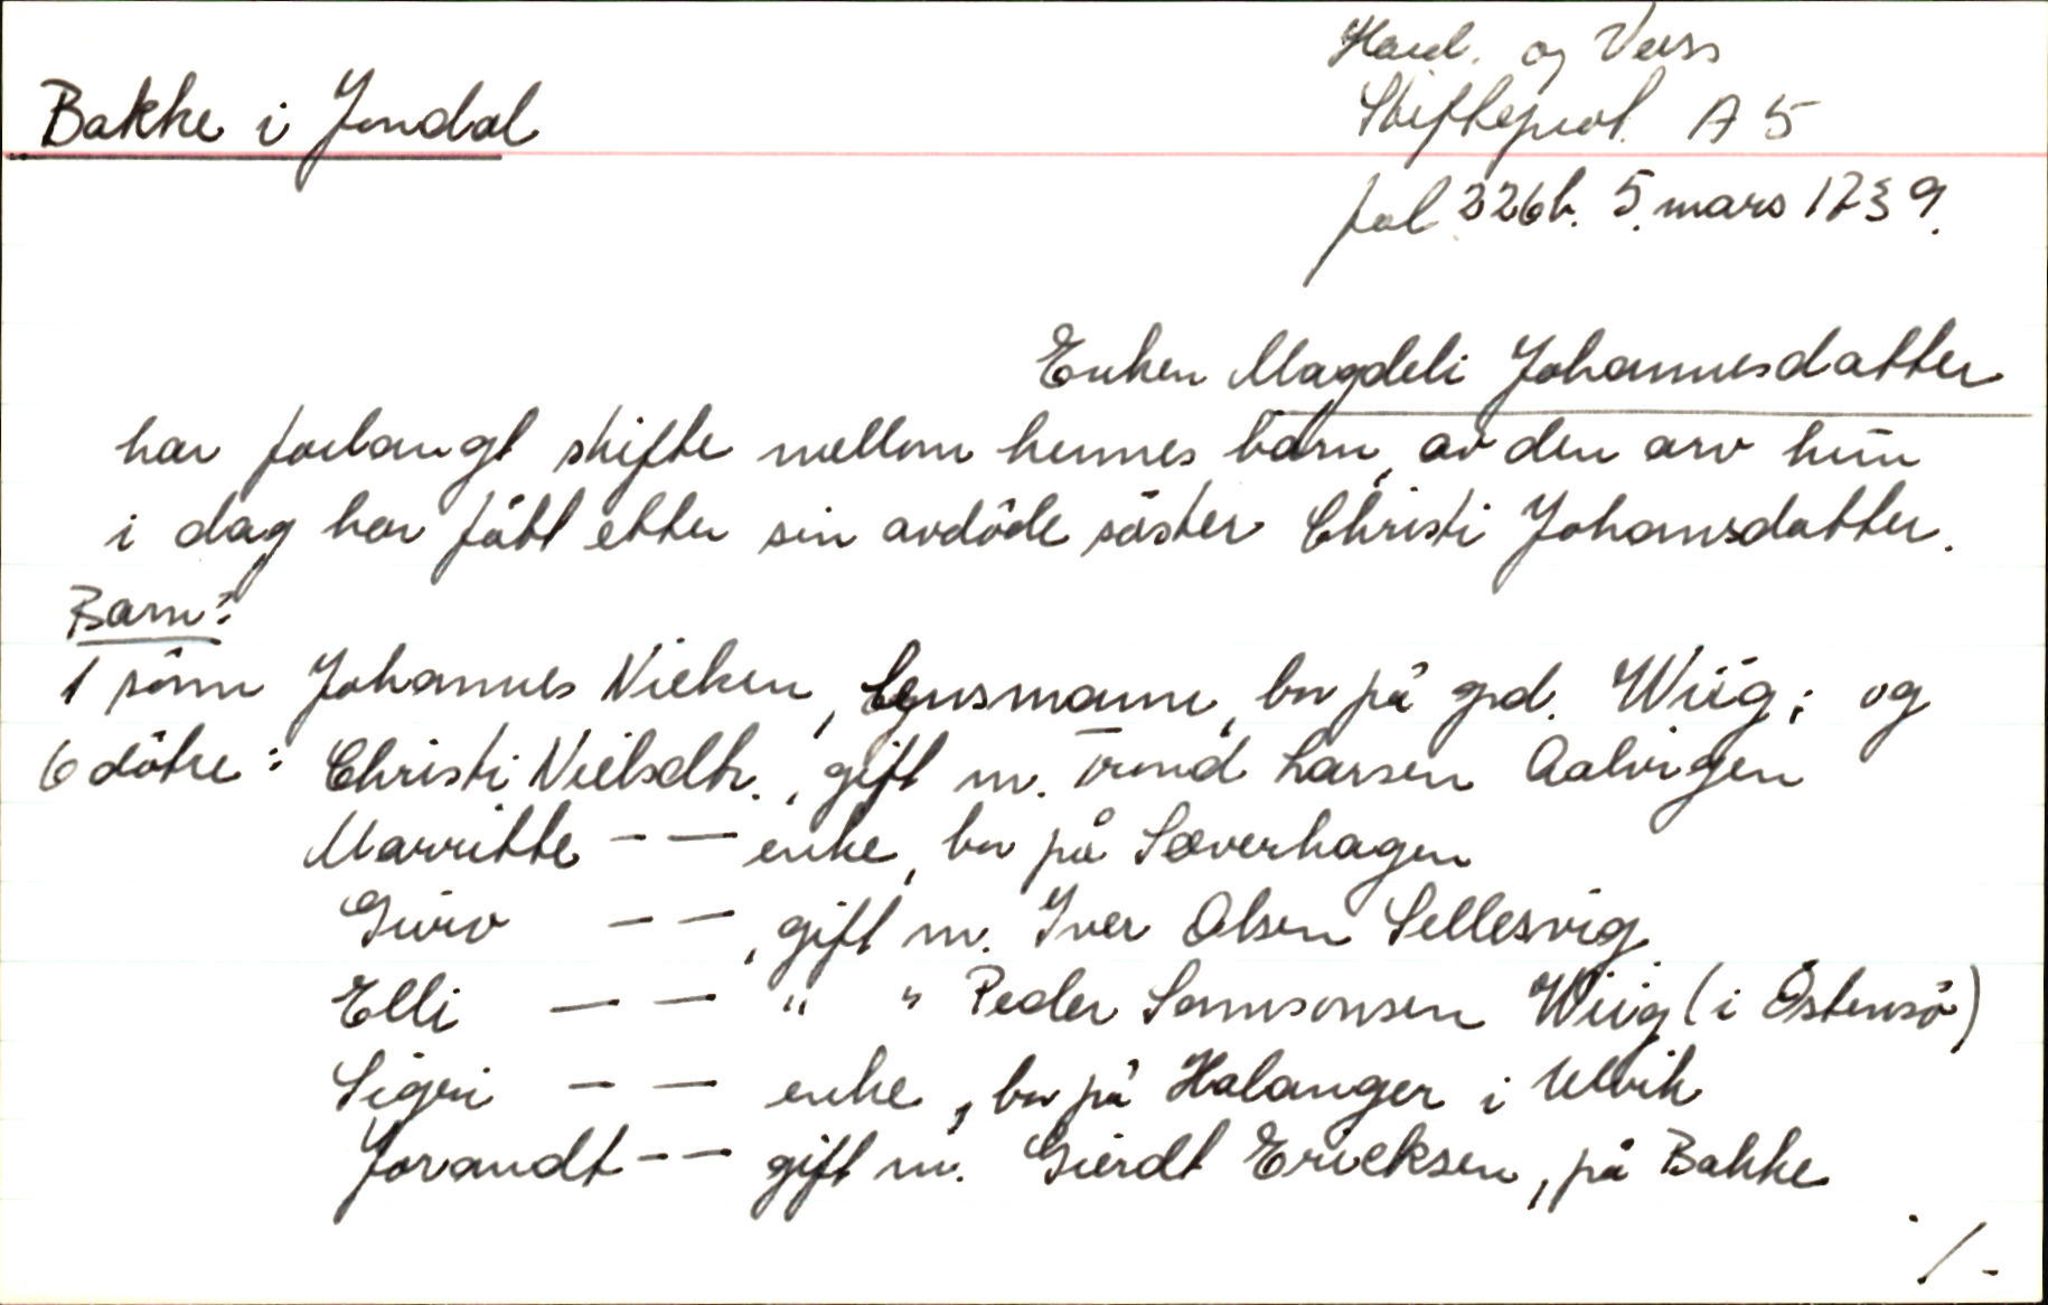 Hard. og Voss
Bakke i Jondal
Skifteprot. A 5
fol 326b. 5. mars 1739.
Enken Magdeli Johannesdatter
har forlangt skifte mellom hennes barn, av den arv hun
i dag har fått etter sin avdöde söster Christi Johansdatter.
Barn:
1 sönn Johannes Nielsen, Lensmann, bor på grd. Wiig; og
6 dötre: Christi Nielsdtr., gift m. Trond Larsen Aalvigen
Marritte — — enke, bor på Sæverhagen
Guro — —, gift m. Iver Olsen Sellesvig.
Elli — — " " Peder Samsonsen Wiig (i Östensö)
Sigri — — enke, bor på Halanger i Ulvik
Jorandt — — gift m. Gierdt Ericksen, på Bakke
./-